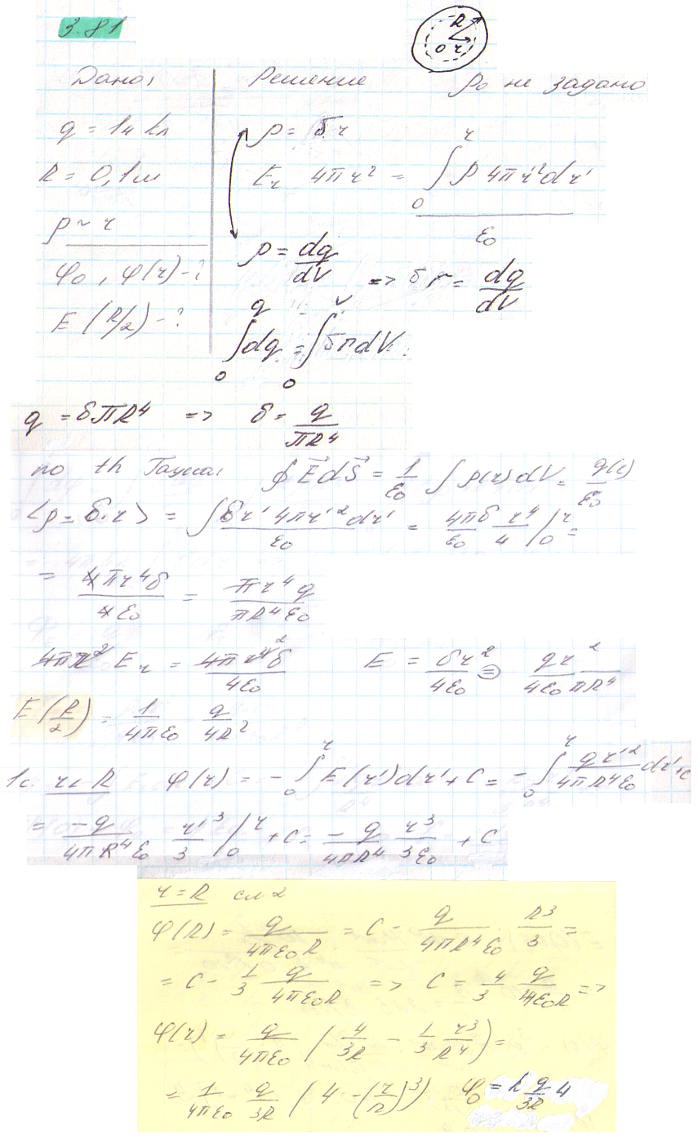 3.81
R
0 r
Дано:
q = 1н Кл
R = 0,1м
ρ ~ r
φ₀, φ(r) - ?
E (R/2) - ?
Решение ρ₀ не задано
ρ = δ r
E_r 4πr² = ∫₀^r ρ 4πr'² dr' / ε₀
ρ = dq/dV => δ r = dq/dV
∫₀^q dq = ∫₀^V δ r dV
q = δπR⁴ => δ = q/πR⁴
по th Гаусса: ∮ E⃗ dS⃗ = 1/ε₀ ∫ ρ(r) dV = q(r)/ε₀
<ρ = δ·r> = ∫ δr' 4πr'² dr' / ε₀ = 4πδ/ε₀ r⁴/4 |₀^r =
= 4πr⁴δ / 4ε₀ = πr⁴q / πR⁴ε₀
4πr² E_r = 4πr⁴δ / 4ε₀ E = δr²/4ε₀ = qr²/4ε₀πR⁴
E(R/2) = 1/4πε₀ q/4R²
1с. r < R φ(r) = - ∫₀^r E(r')dr' + C = - ∫₀^r qr'²/4πR⁴ε₀ dr' + C
= -q/4πR⁴ε₀ r'³/3 |₀^r + C = - q/4πR⁴ r³/3ε₀ + C
r = R см 2
φ(R) = q/4πε₀R = C - q/4πR⁴ε₀ · R³/3 =
= C - 1/3 q/4πε₀R => C = 4/3 q/4πε₀R =>
φ(r) = q/4πε₀ ( 4/3R - 1/3 r³/R⁴ ) =
= 1/4πε₀ q/3R ( 4 - (r/R)³ ) φ₀ = k q/3R 4